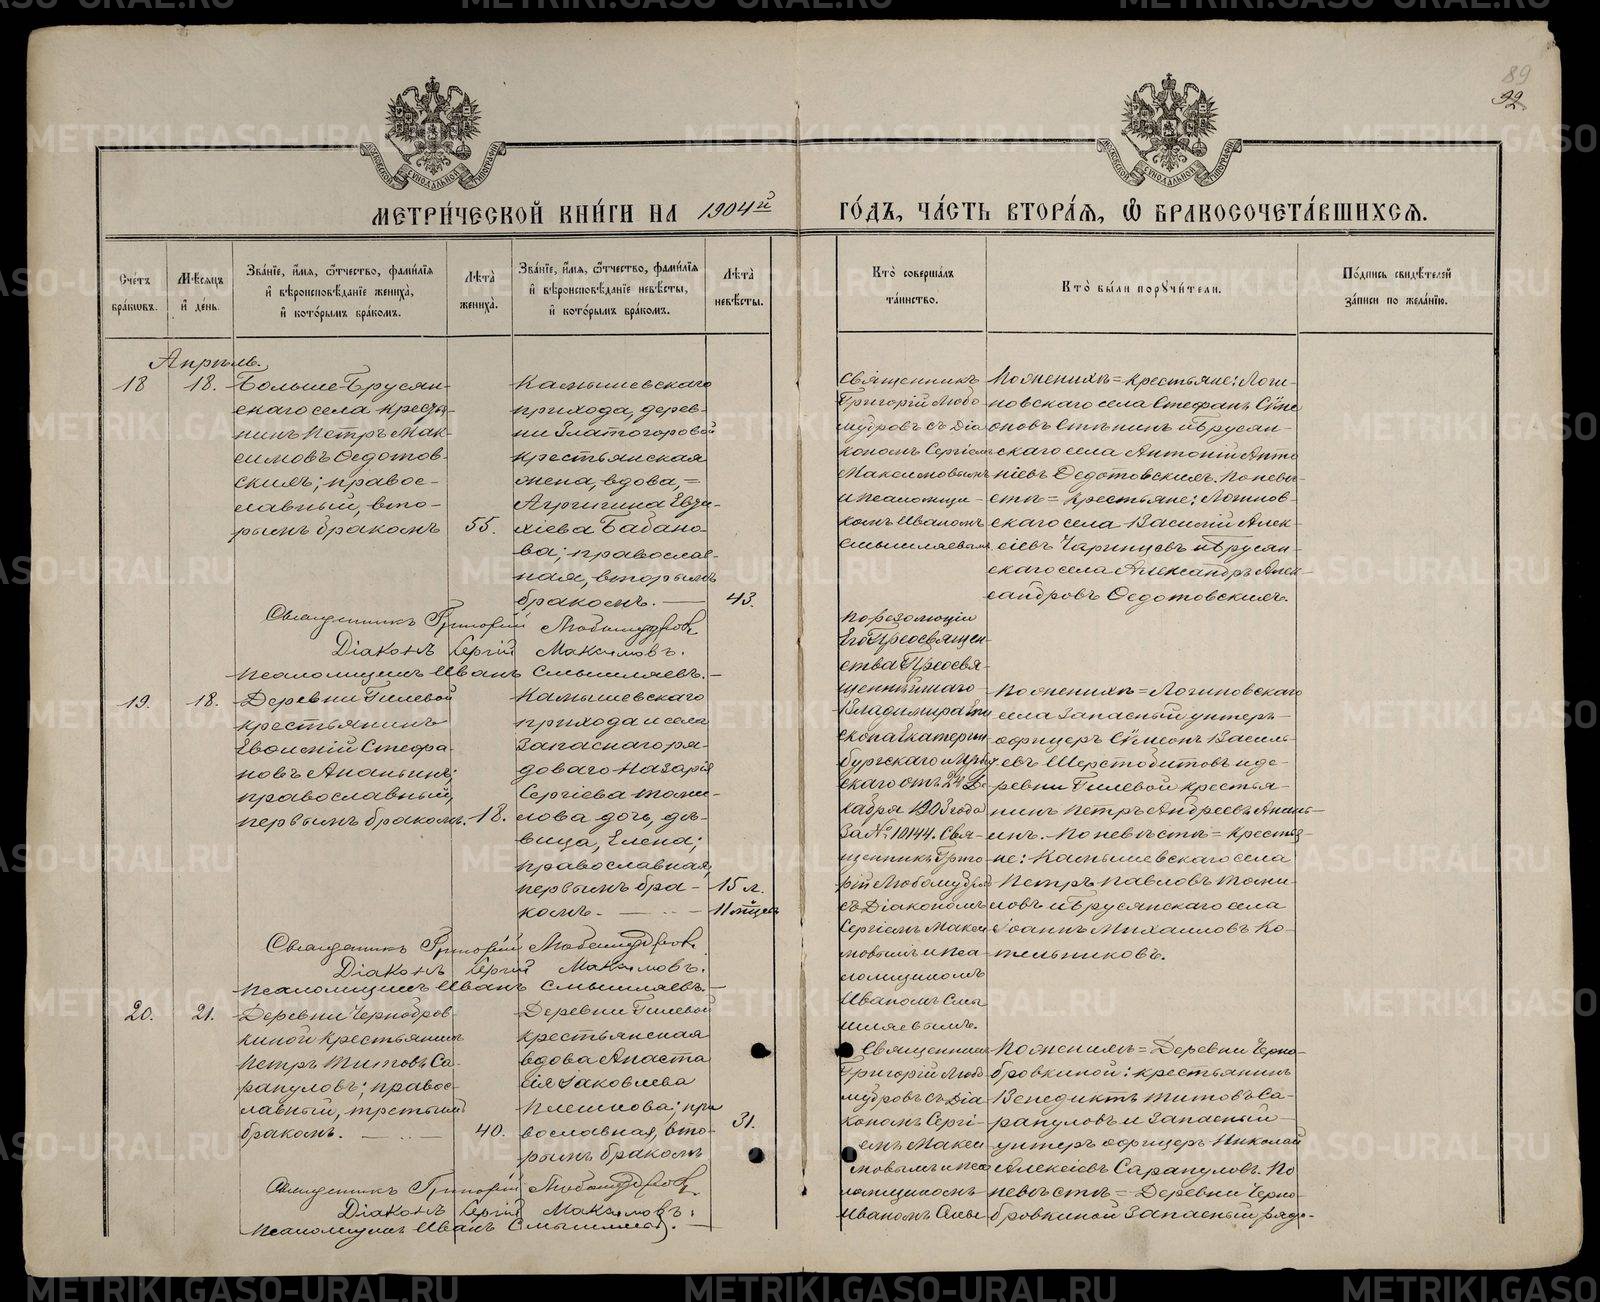 89
32
МОСКОВСКОЙ СѴНОДАЛЬНОЙ ТИПОГРАФІИ
МОСКОВСКОЙ СѴНОДАЛЬНОЙ ТИПОГРАФІИ
МЕТРИ́ЧЕСКОЙ КНИ́ГИ НА 1904й
ГО́ДЪ, ЧА́СТЬ ВТОРА́Я, Ѽ БРАКОСОЧЕТА́ВШИХСЯ.
Сче́тъ бра́ковъ.
Мѣ́сяцъ и҆ де́нь.
Зва́нїе, и҆́мя, ѻ҆́тчество, фами́лїя и҆ вѣроисповѣ́данїе жениха̀, и҆ кото́рымъ бра́комъ.
Лѣ́та̀ жениха̀.
Зва́нїе, и҆́мя, ѻ҆́тчество, фами́лїя и҆ вѣроисповѣ́данїе невѣ́сты, и҆ кото́рымъ бра́комъ.
Лѣ́та̀ невѣ́сты.
Кто̀ соверша́лъ та́инство.
Кто̀ бы́ли порꙋчи́тели.
По́дпись свидѣ́телей за́писи по жела́нїю.
Апрѣль.
18
18.
Больше-Брусян-
скаго села кресть-
нинъ Петръ Мак-
симовъ Ѳедотов-
скихъ; правос-
лавный, вто-
рымъ бракомъ
55.
Камышевскаго
прихода, дерев-
ни Златогоровой
крестьянская
жена, вдова, =
Агрипина Евди-
хіева Бабано-
ва; православ-
ная, вторымъ
бракомъ.
43.
Священникъ
Григорій Любо-
мудровъ съ Діа
кономъ Сергіемъ
Максимовымъ
и псаломщи-
комъ Иваномъ
Смышляевымъ
По женихѣ = крестьяне: Логи-
новскаго села Стефанъ Сѵме
оновъ Стѣнинъ и Брусян-
скаго села Антоній Анто
ніевъ Ѳедотовскихъ. По невѣ-
стѣ = крестьяне: Логинов-
скаго села Василій Алек-
сіевъ Чаринцевъ и Брусян-
скаго села Александръ Алек-
сандровъ Ѳедотовскихъ.
Священникъ Григорій Любомудровъ
Діаконъ Сергій Максимовъ.
Псаломщикъ Иванъ Смышляевъ.
19.
18.
Деревни Гилевой
крестьянинъ
Евдокій Стефа-
новъ Ананьинъ;
православный,
первымъ бракомъ.
18.
Камышевскаго
прихода и села
запаснаго ря-
доваго Назарія
Сергіева Томи-
лова дочь, дѣ-
вица, Елена;
православная,
первымъ бра-
комъ.
15 л.
11 мѣсяц
По резолюціи
Его Преосвящен-
ства Преосвя-
щеннѣйшаго
Владиміра Епи
скопа Екатерин
бургскаго и Ирби
скаго отъ 24 Де-
кабря 1903 года
за № 10144. Свя-
щенникъ Григо-
рій Любомудров
съ Діакономъ
Сергіемъ Макси
мовымъ и пса-
ломщикомъ
Иваномъ Смы
шляевымъ.
По женихѣ = Логиновскаго
села запасный унтеръ-
офицеръ Сѵмеонъ Василь-
евъ Шерстобитовъ и де-
ревни Гилевой крестья-
нинъ Петръ Андреевъ Анань-
инъ. - По невѣстѣ = крестья-
не: Камышевскаго села
Петръ Павловъ Томи-
ловъ и Брусянскаго села
Іоаннъ Михаиловъ Ко-
тельниковъ.
Священникъ Григорій Любомудровъ.
Діаконъ Сергій Максимовъ.
Псаломщикъ Иванъ Смышляевъ.
20.
21.
Деревни Чернобров-
киной крестьянинъ
Петръ Титовъ Са-
рапуловъ; правос-
лавный, третьимъ
бракомъ.
40.
Деревни Гилевой
крестьянская
вдова Анаста
сія Іаковлева
Плешкова; пра
вославная, вто-
рымъ бракомъ
31.
Священникъ
Григорій Любо
мудровъ съ Діа
кономъ Сергі-
емъ Макси
мовымъ и пса
ломщикомъ
Иваномъ Смы
По женихѣ = Деревни Черно-
бровкиной: крестьянинъ
Венедиктъ Титовъ Са-
рапуловъ и запасный
унтеръ офицеръ Николай
Алексіевъ Сарапуловъ. По
невѣстѣ = Деревни Черно-
бровкиной запасный рядо-
Священникъ Григорій Любомудровъ.
Діаконъ Сергій Максимовъ.
Псаломщикъ Иванъ Смышляевъ.